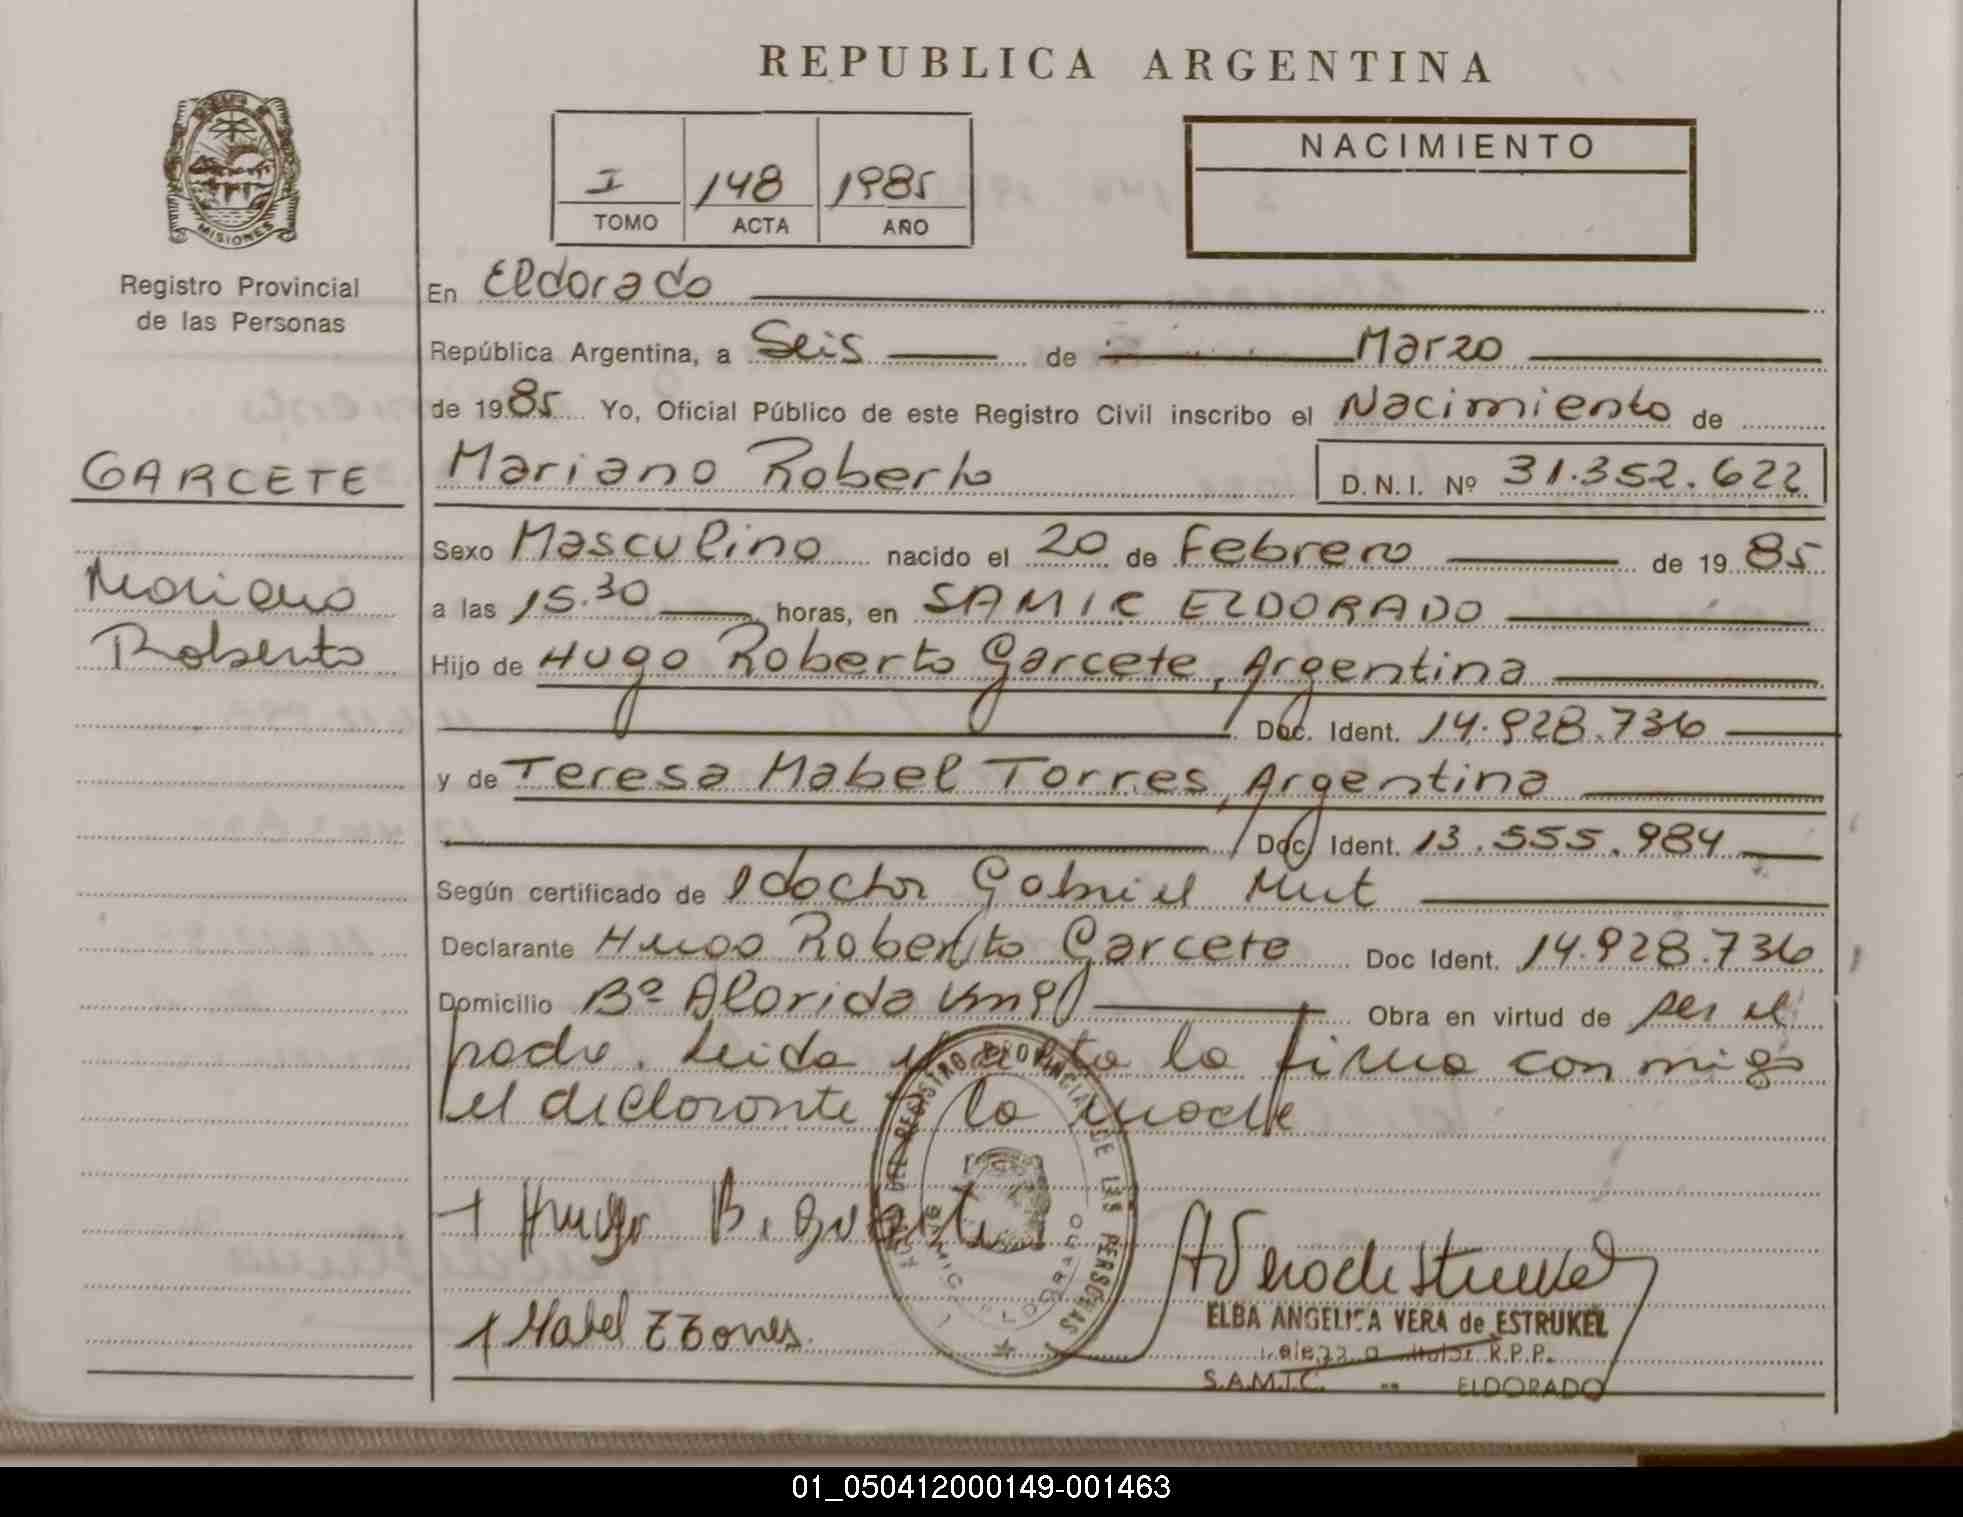 REPUBLICA ARGENTINA
MISIONES
Registro Provincial
de las Personas
I 148 1985
TOMO ACTA AÑO
NACIMIENTO
En Eldorado
República Argentina, a Seis de Marzo
de 1985 Yo, Oficial Público de este Registro Civil inscribo el Nacimiento de
GARCETE
Mariano Roberto D.N.I. Nº 31.352.622
Sexo Masculino nacido el 20 de Febrero de 1985
Mariano
Roberto
a las 15.30 horas, en SAMIC ELDORADO
Hijo de Hugo Roberto Garcete, Argentina
Doc. Ident. 14.928.736
y de Teresa Mabel Torres, Argentina
Doc. Ident. 13.555.984
Según certificado de l doctor Gabriel Mut
Declarante Hugo Roberto Garcete Doc Ident. 14.928.736
Domicilio Bº Km 9 Obra en virtud de ser el
padre. Leida el acta la firma conmigo
el declarante y la madre
REGISTRO PROVINCIAL DE LAS PERSONAS
ELDORADO
Hugo R. Garcete
Mabel T Torres.
ELBA ANGELICA VERA de ESTRUKEL
R.P.P.
S.A.M.I.C. -- ELDORADO
01_050412000149-001463